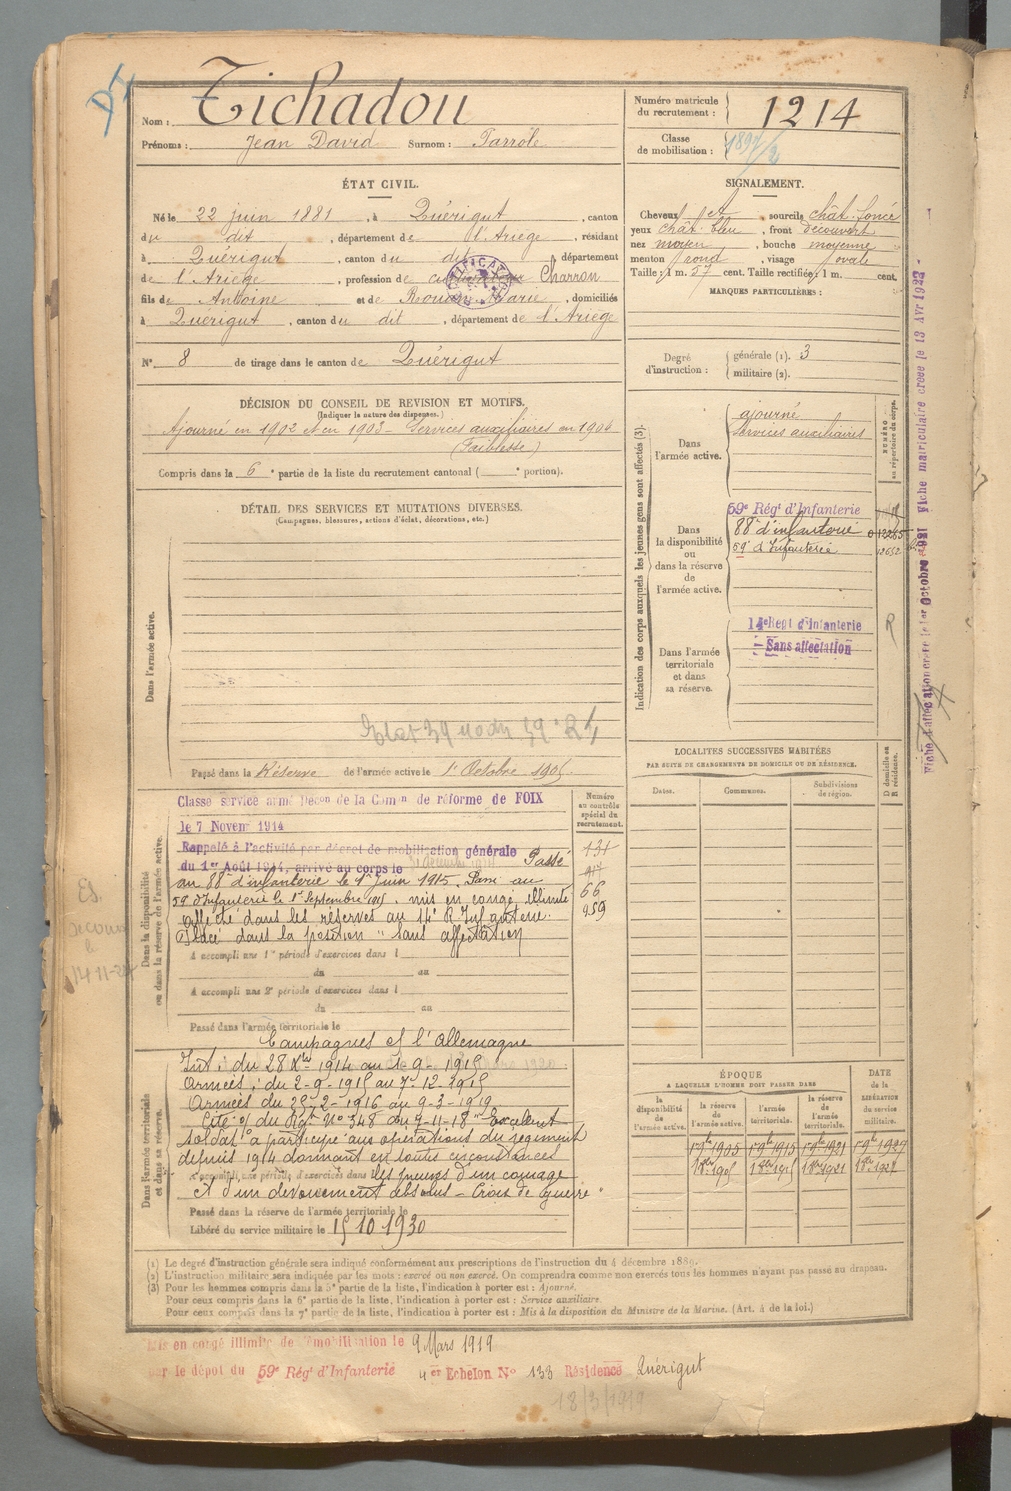 Nom : Tichadou
Prénoms : Jean David Surnom : Parrole
Numéro matricule du recrutement : 1214
Classe de mobilisation : 1897/2
ÉTAT CIVIL.
Né le 22 juin 1881, à Quérigut, canton
du dit, département de l'Ariège, résidant
à Quérigut, canton du dit, département
de l'Ariège, profession de cultivateur Charron
fils de Antoine et de Marie, domiciliés
à Quérigut, canton du dit, département de l'Ariège
N° 8 de tirage dans le canton de Quérigut
SIGNALEMENT.
Cheveux et, sourcils chât. foncé
yeux chât. bleu, front découvert
nez moyen, bouche moyenne
menton rond, visage ovale
Taille : 1 m. 57 cent. Taille rectifiée : 1 m. cent.
MARQUES PARTICULIÈRES :
Degré d'instruction : générale (1). 3
militaire (2).
DÉCISION DU CONSEIL DE REVISION ET MOTIFS.
(Indiquer la nature des dispenses.)
Ajourné en 1902 et en 1903 - Services auxiliaires en 1904
(Faiblesse)
Compris dans la 6e partie de la liste du recrutement cantonal ( e portion).
DÉTAIL DES SERVICES ET MUTATIONS DIVERSES.
(Campagnes, blessures, actions d'éclat, décorations, etc.)
Dans l'armée active.
Passé dans la Réserve de l'armée active le 1er Octobre 1905.
Indication des corps auxquels les jeunes gens sont affectés (3).
NUMÉRO au répertoire du corps.
Dans l'armée active.
ajourné
Services auxiliaires
Dans la disponibilité ou dans la réserve de l'armée active.
59e Régt d'Infanterie
88e d'infanterie 012265
59e d'Infanterie 12652
Dans l'armée territoriale et dans sa réserve.
14e Régt d'Infanterie
Sans affectation
R
Fiche d'affectation créée le 1er Octobre 1921 Fiche matriculaire créée le 13 Avr 1922
LOCALITÉS SUCCESSIVES HABITÉES
PAR SUITE DE CHANGEMENTS DE DOMICILE OU DE RÉSIDENCE.
Dates. Communes. Subdivisions de région. D domicile ou R résidence.
Dans la disponibilité ou dans la réserve de l'armée active.
Numéro au contrôle spécial du recrutement.
Classé service armé Décon de la Comon de réforme de FOIX
le 7 Novem 1914
Rappelé à l'activité par décret de mobilisation générale
du 1er Août 1914, arrivé au corps le Passé
au 88e d'infanterie le 1er Juin 1915. Passé au
59e d'Infanterie le 1er Septembre 1915. mis en congé illimité
affecté dans les réserves au 14e R. Infanterie.
Placé dans la position "Sans affectation
131
917
66
959
A accompli une 1re période d'exercices dans l
du au
A accompli une 2e période d'exercices dans l
du au
Passé dans l'armée territoriale le
Dans l'armée territoriale et dans sa réserve.
Campagnes et l'Allemagne
Int : du 28 Xbre 1914 au 1-9-1915
Armées : du 2-9-1915 au 7-12-1915
Armées du 25-2-1916 au 9-3-1919
Cité o/ du Régt N° 348 du 7-11-18 "Excellent
soldat a participé aux opérations du régiment
depuis 1914 donnant en toutes circonstances
A accompli une période d'exercices dans les preuves d'un courage
et d'un dévouement absolus - Croix de guerre"
Passé dans la réserve de l'armée territoriale le
Libéré du service militaire le 15 10 1930
ÉPOQUE
A LAQUELLE L'HOMME DOIT PASSER DANS
DATE de la LIBÉRATION du service militaire.
la disponibilité de l'armée active. la réserve de l'armée active. l'armée territoriale. la réserve de l'armée territoriale.
1er 8bre 1905 1er 8bre 1915 1er 8bre 1921 1er 8bre 1927
(1) Le degré d'instruction générale sera indiqué conformément aux prescriptions de l'instruction du 4 décembre 1889.
(2) L'instruction militaire sera indiquée par les mots : exercé ou non exercé. On comprendra comme non exercés tous les hommes n'ayant pas passé au drapeau.
(3) Pour les hommes compris dans la 5e partie de la liste, l'indication à porter est : Ajourné.
Pour ceux compris dans la 6e partie de la liste, l'indication à porter est : Service auxiliaire.
Pour ceux compris dans la 7e partie de la liste, l'indication à porter est : Mis à la disposition du Ministre de la Marine. (Art. 4 de la loi.)
Mis en congé illimité de démobilisation le 9 Mars 1919
par le dépôt du 59e Régt d'Infanterie 4er Echelon N° 133 Résidence Quérigut
18/3/1919